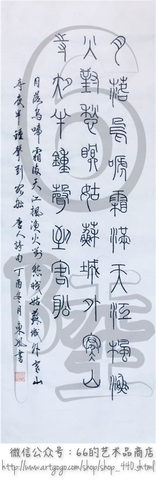 月落烏嗁霜滿天江楓漁
火對愁眠姑蘇城外寒山
寺夜半鐘聲到客船
月落烏啼霜滿天江楓漁火對愁眠姑蘇城外寒山
寺夜半鐘聲到客船 唐人詩句丁酉月東書
微信公众号：66的艺术品商店
http://www.artgogo.com/shop/shop_440.dhtml